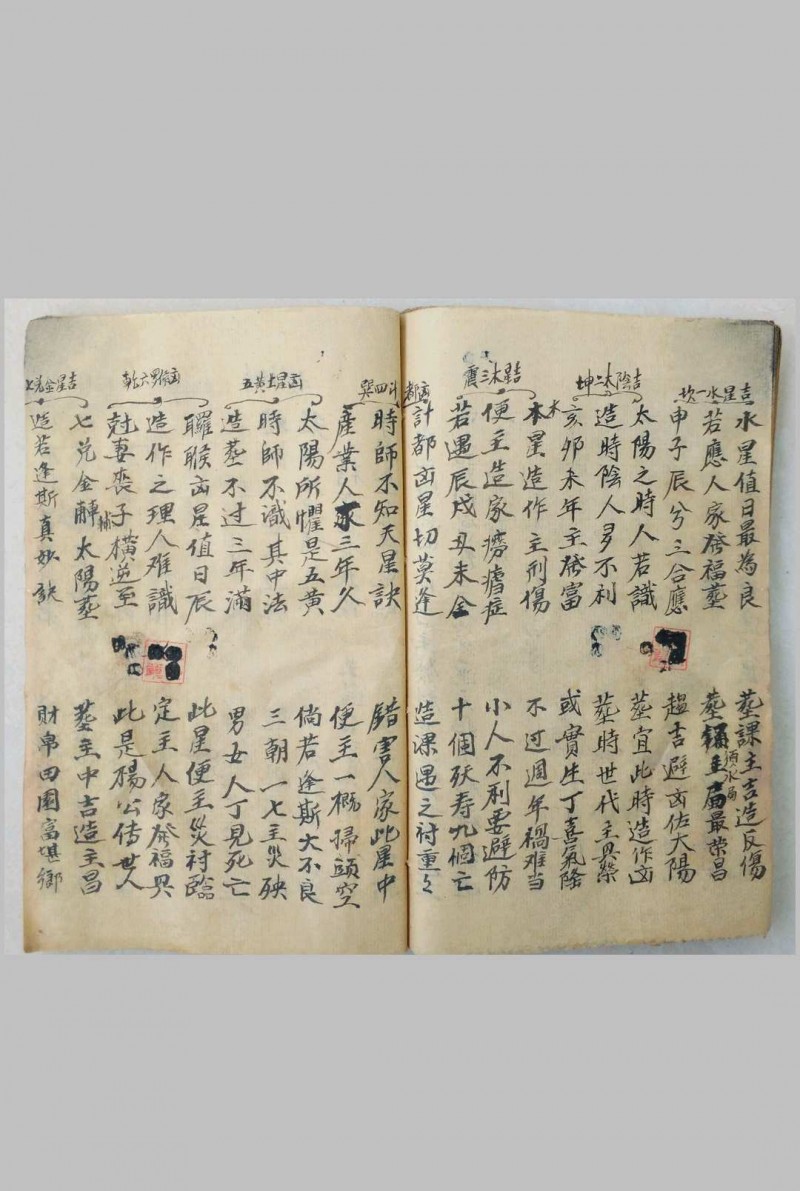 吉星水一坎
水星值日最為良
葬課主吉造反傷
若應人家發福葬
最榮昌
申子辰兮三合應
趨吉避凶佐太陽
吉太陰土二坤
太陽之時人若識
葬宜此時造作凶
造時陰人多不利
葬時世代主興榮
亥卯未年主發富
或實生丁喜氣隆
吉星木三震
木星造作主刑傷
不過週年禍难当
便主造家癆瘧症
小人不利要避防
若遇辰戌丑未全
十個殀寿九個亡
凶計都四巽
計都凶星切莫逢
造課遇之禍重々
時師不知天星訣
錯害人家此星中
產業人家三年久
便主一概掃頭空
凶星土黃五
太陽所懼是五黃
倘若逢斯大不良
時師不識其中法
三朝一七主災殃
造葬不过三年滿
男女人丁見死亡
凶羅男六乾
羅睺凶星值日辰
此星便主災禍臨
造作之理人难識
定主人家發福興
尅妻喪子橫逆至
此是楊公傳世人
吉星金水七
七兌金星輔太陽葬
葬主中吉造主昌
造若逢斯真妙訣
財帛田園富堪鄉